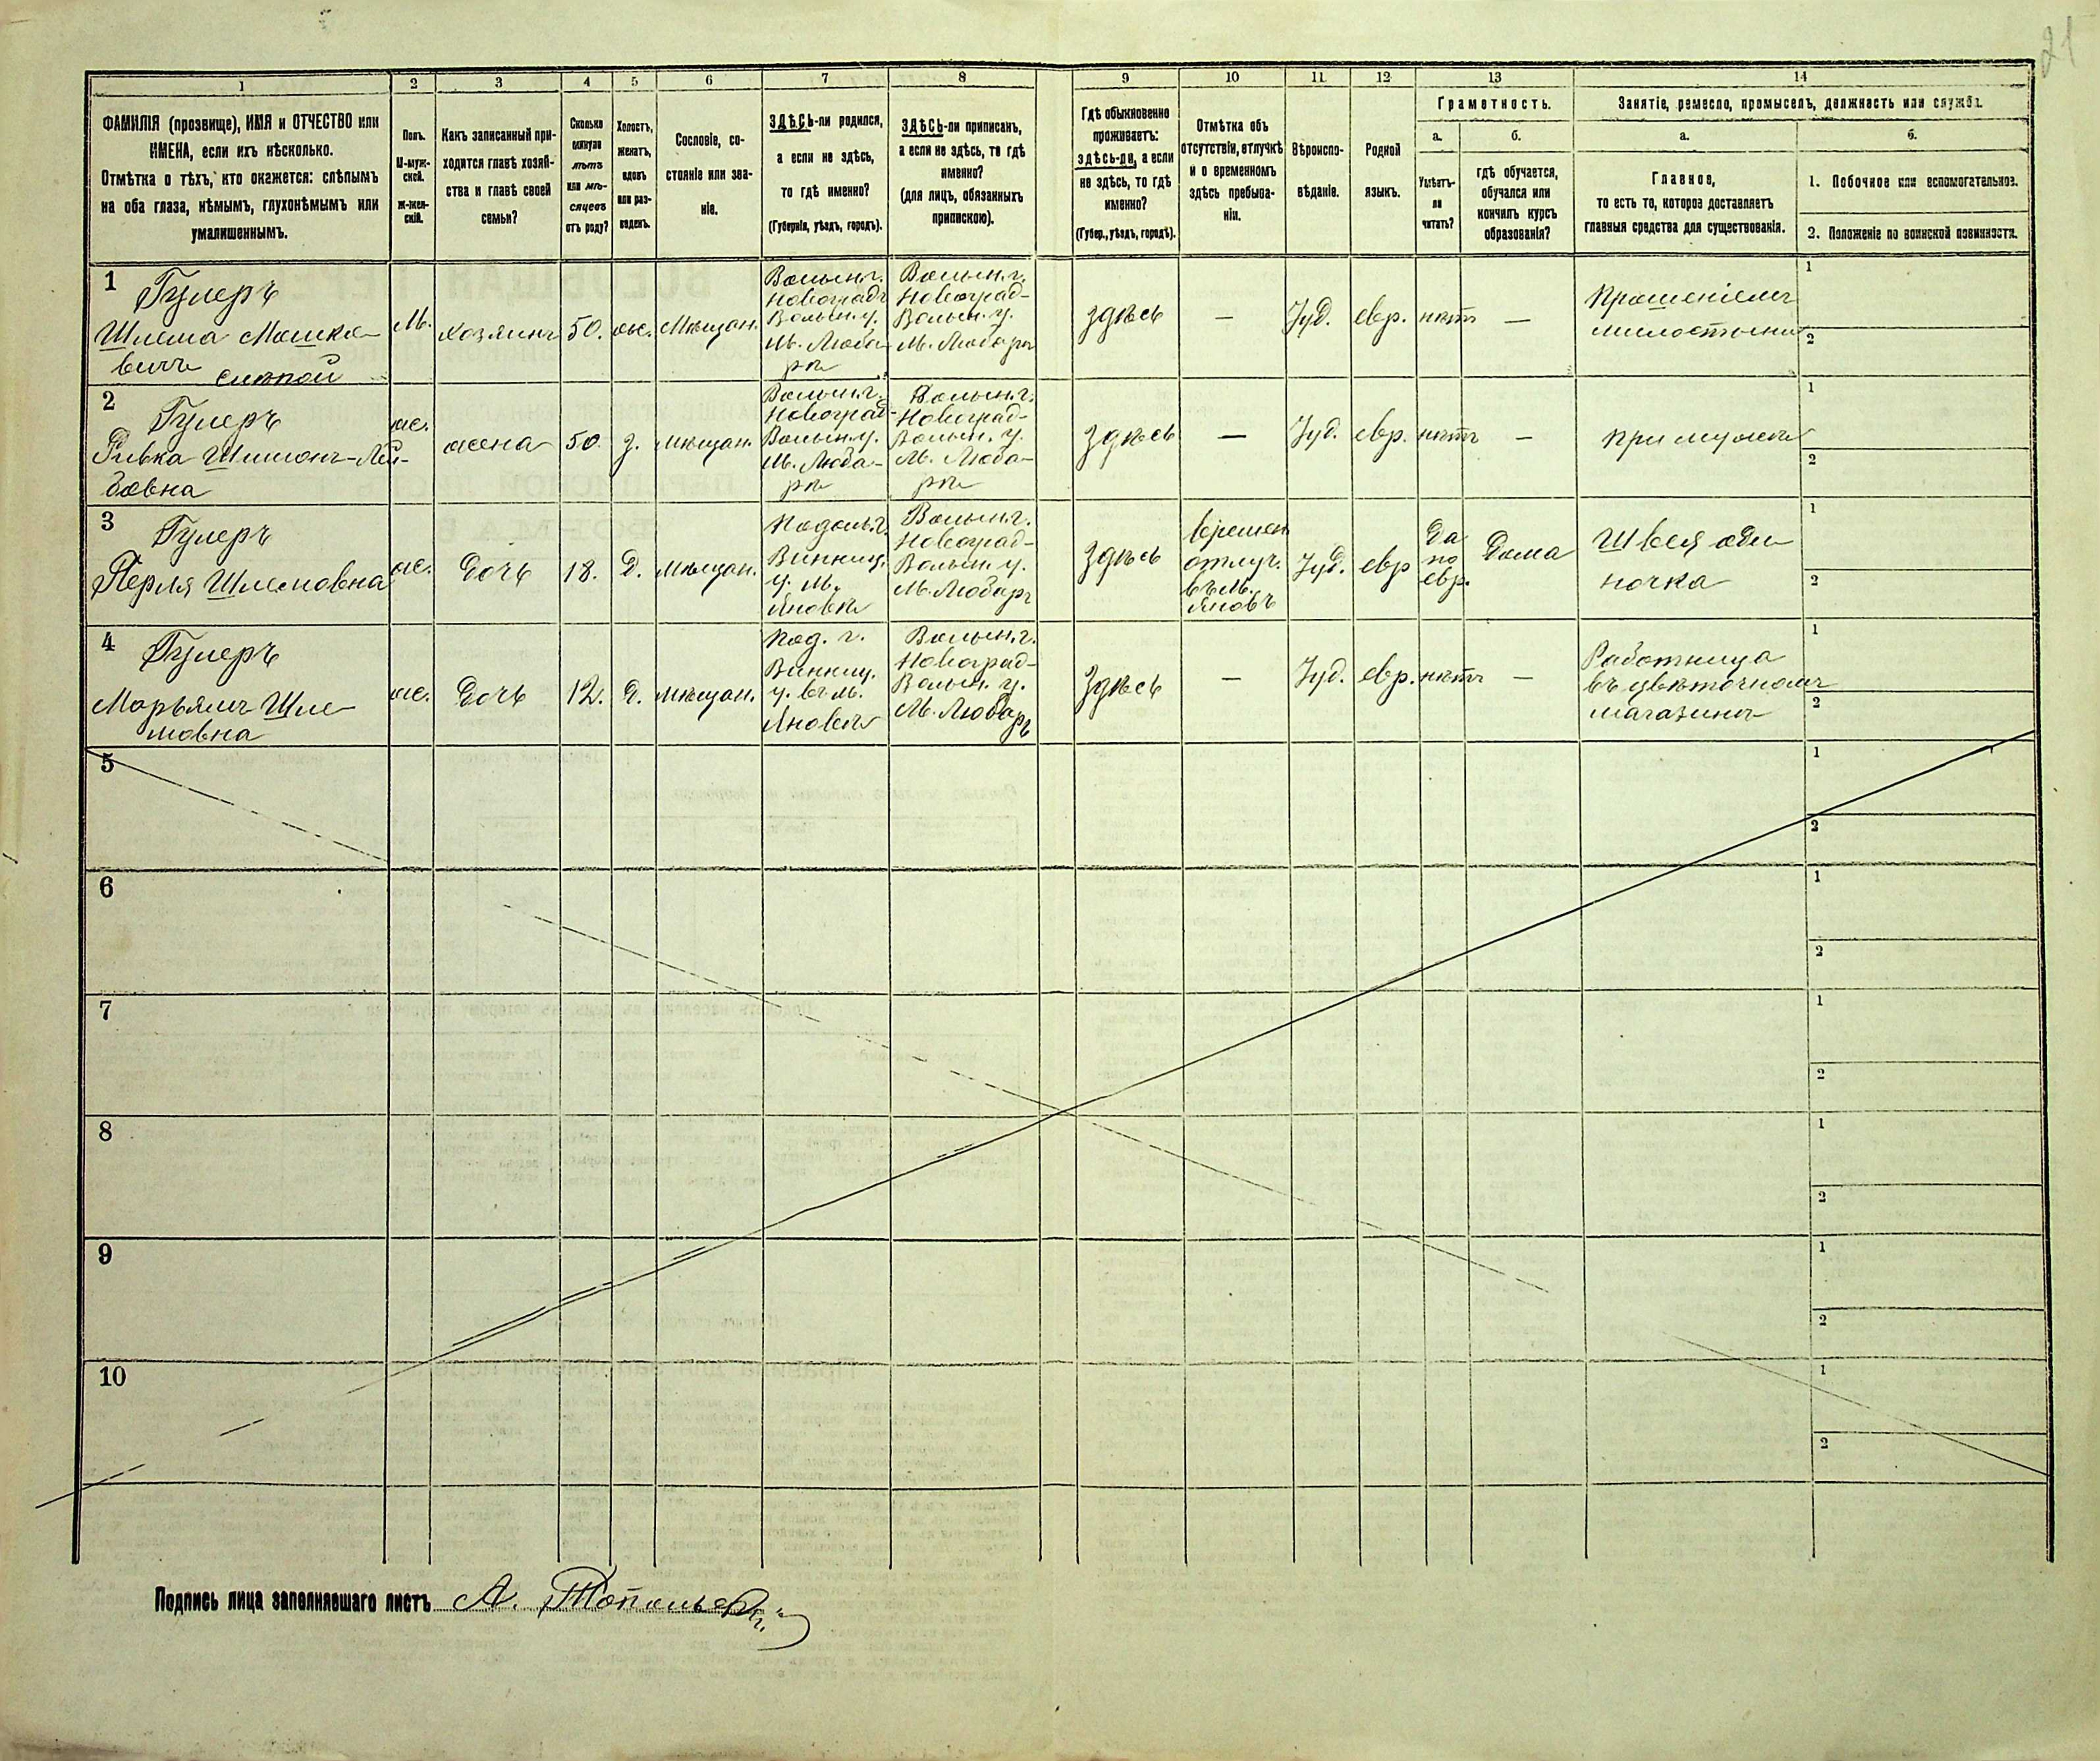 21
1
2
3
4
5
6
7
8
9
10
11
12
13
14
ФАМИЛІЯ (прозвище), ИМЯ и ОТЧЕСТВО или
ИМЕНА, если ихъ нѣсколько.
Отмѣтка о тѣхъ, кто окажется: слѣпымъ
на оба глаза, нѣмымъ, глухонѣмымъ или
умалишеннымъ.
Полъ.
М-муж-
ской.
ж-жен-
скій.
Какъ записанный при-
ходится главѣ хозяй-
ства и главѣ своей
семьи?
Сколько
минуло
лѣтъ
или мѣ-
сяцевъ
отъ роду?
Холостъ,
женатъ,
вдовъ
или раз-
веденъ.
Сословіе, со-
стояніе или зва-
ніе.
ЗДѢСЬ-ли родился,
а если не здѣсь,
то гдѣ именно?
(Губернія, уѣздъ, городъ).
ЗДѢСЬ-ли приписанъ,
а если не здѣсь, то гдѣ
именно?
(для лицъ, обязанныхъ
припискою).
Гдѣ обыкновенно
проживаетъ:
здѣсь-ли, а если
не здѣсь, то гдѣ
именно?
(Губер., уѣздъ, городъ).
Отмѣтка объ
отсутствіи, отлучкѣ
и о временномъ
здѣсь пребыва-
ніи.
Вѣроиспо-
вѣданіе.
Родной
языкъ.
Грамотность.
а.
Умѣетъ-
ли
читать?
б.
гдѣ обучается,
обучался или
кончилъ курсъ
образованія?
Занятіе, ремесло, промыселъ, должность или служба.
а.
Главное,
то есть то, которое доставляетъ
главныя средства для существованія.
б.
1. Побочное или вспомогательное.
2. Положеніе по воинской повинности.
1
Гулеръ
Шлема Мошко-
вичъ слѣпой
М.
хозяинъ
50.
же.
Мѣщан.
Волын.г.
Новоградъ
Волын.у.
М. Люба-
рѣ
Волын.г.
Новоград-
Волын.у.
М. Любаръ
здѣсь
—
Іуд.
евр.
нѣтъ
—
Прошеніемъ
милостыни
1
2
2
Гулеръ
Ривка Шимонъ-Лей-
бовна
же.
жена
50.
з.
мѣщан.
Волын.г.
Новоград-
Волын.у.
М. Люба-
рѣ
Волын.г.
Новоград-
Волын.у.
М. Люба-
рѣ
здѣсь
—
Іуд.
евр.
нѣтъ
—
при мужѣ
1
2
3
Гулеръ
Перля Шлемовна
же.
дочь
18.
д.
мѣщан.
Подол.г.
Винниц.
у. м.
Яновѣ
Волын.г.
Новоград-
Волын.у.
М. Любаръ
здѣсь
времен
отлуч.
въ м.
Яновъ
Іуд.
евр
да
по
евр.
дома
Швея оди-
ночка
1
2
4
Гулеръ
Марьямъ Шле-
мовна
же.
дочь
12.
д.
мѣщан.
Под. г.
Винниц.
у. въ м.
Яновѣ
Волын.г.
Новоград-
Волын.у.
М. Любаръ
здѣсь
—
Іуд.
евр.
нѣтъ
—
Работница
въ цвѣточномъ
магазинѣ
1
2
5
1
2
6
1
2
7
1
2
8
1
2
9
1
2
10
1
2
Подпись лица заполнявшаго листъ А.